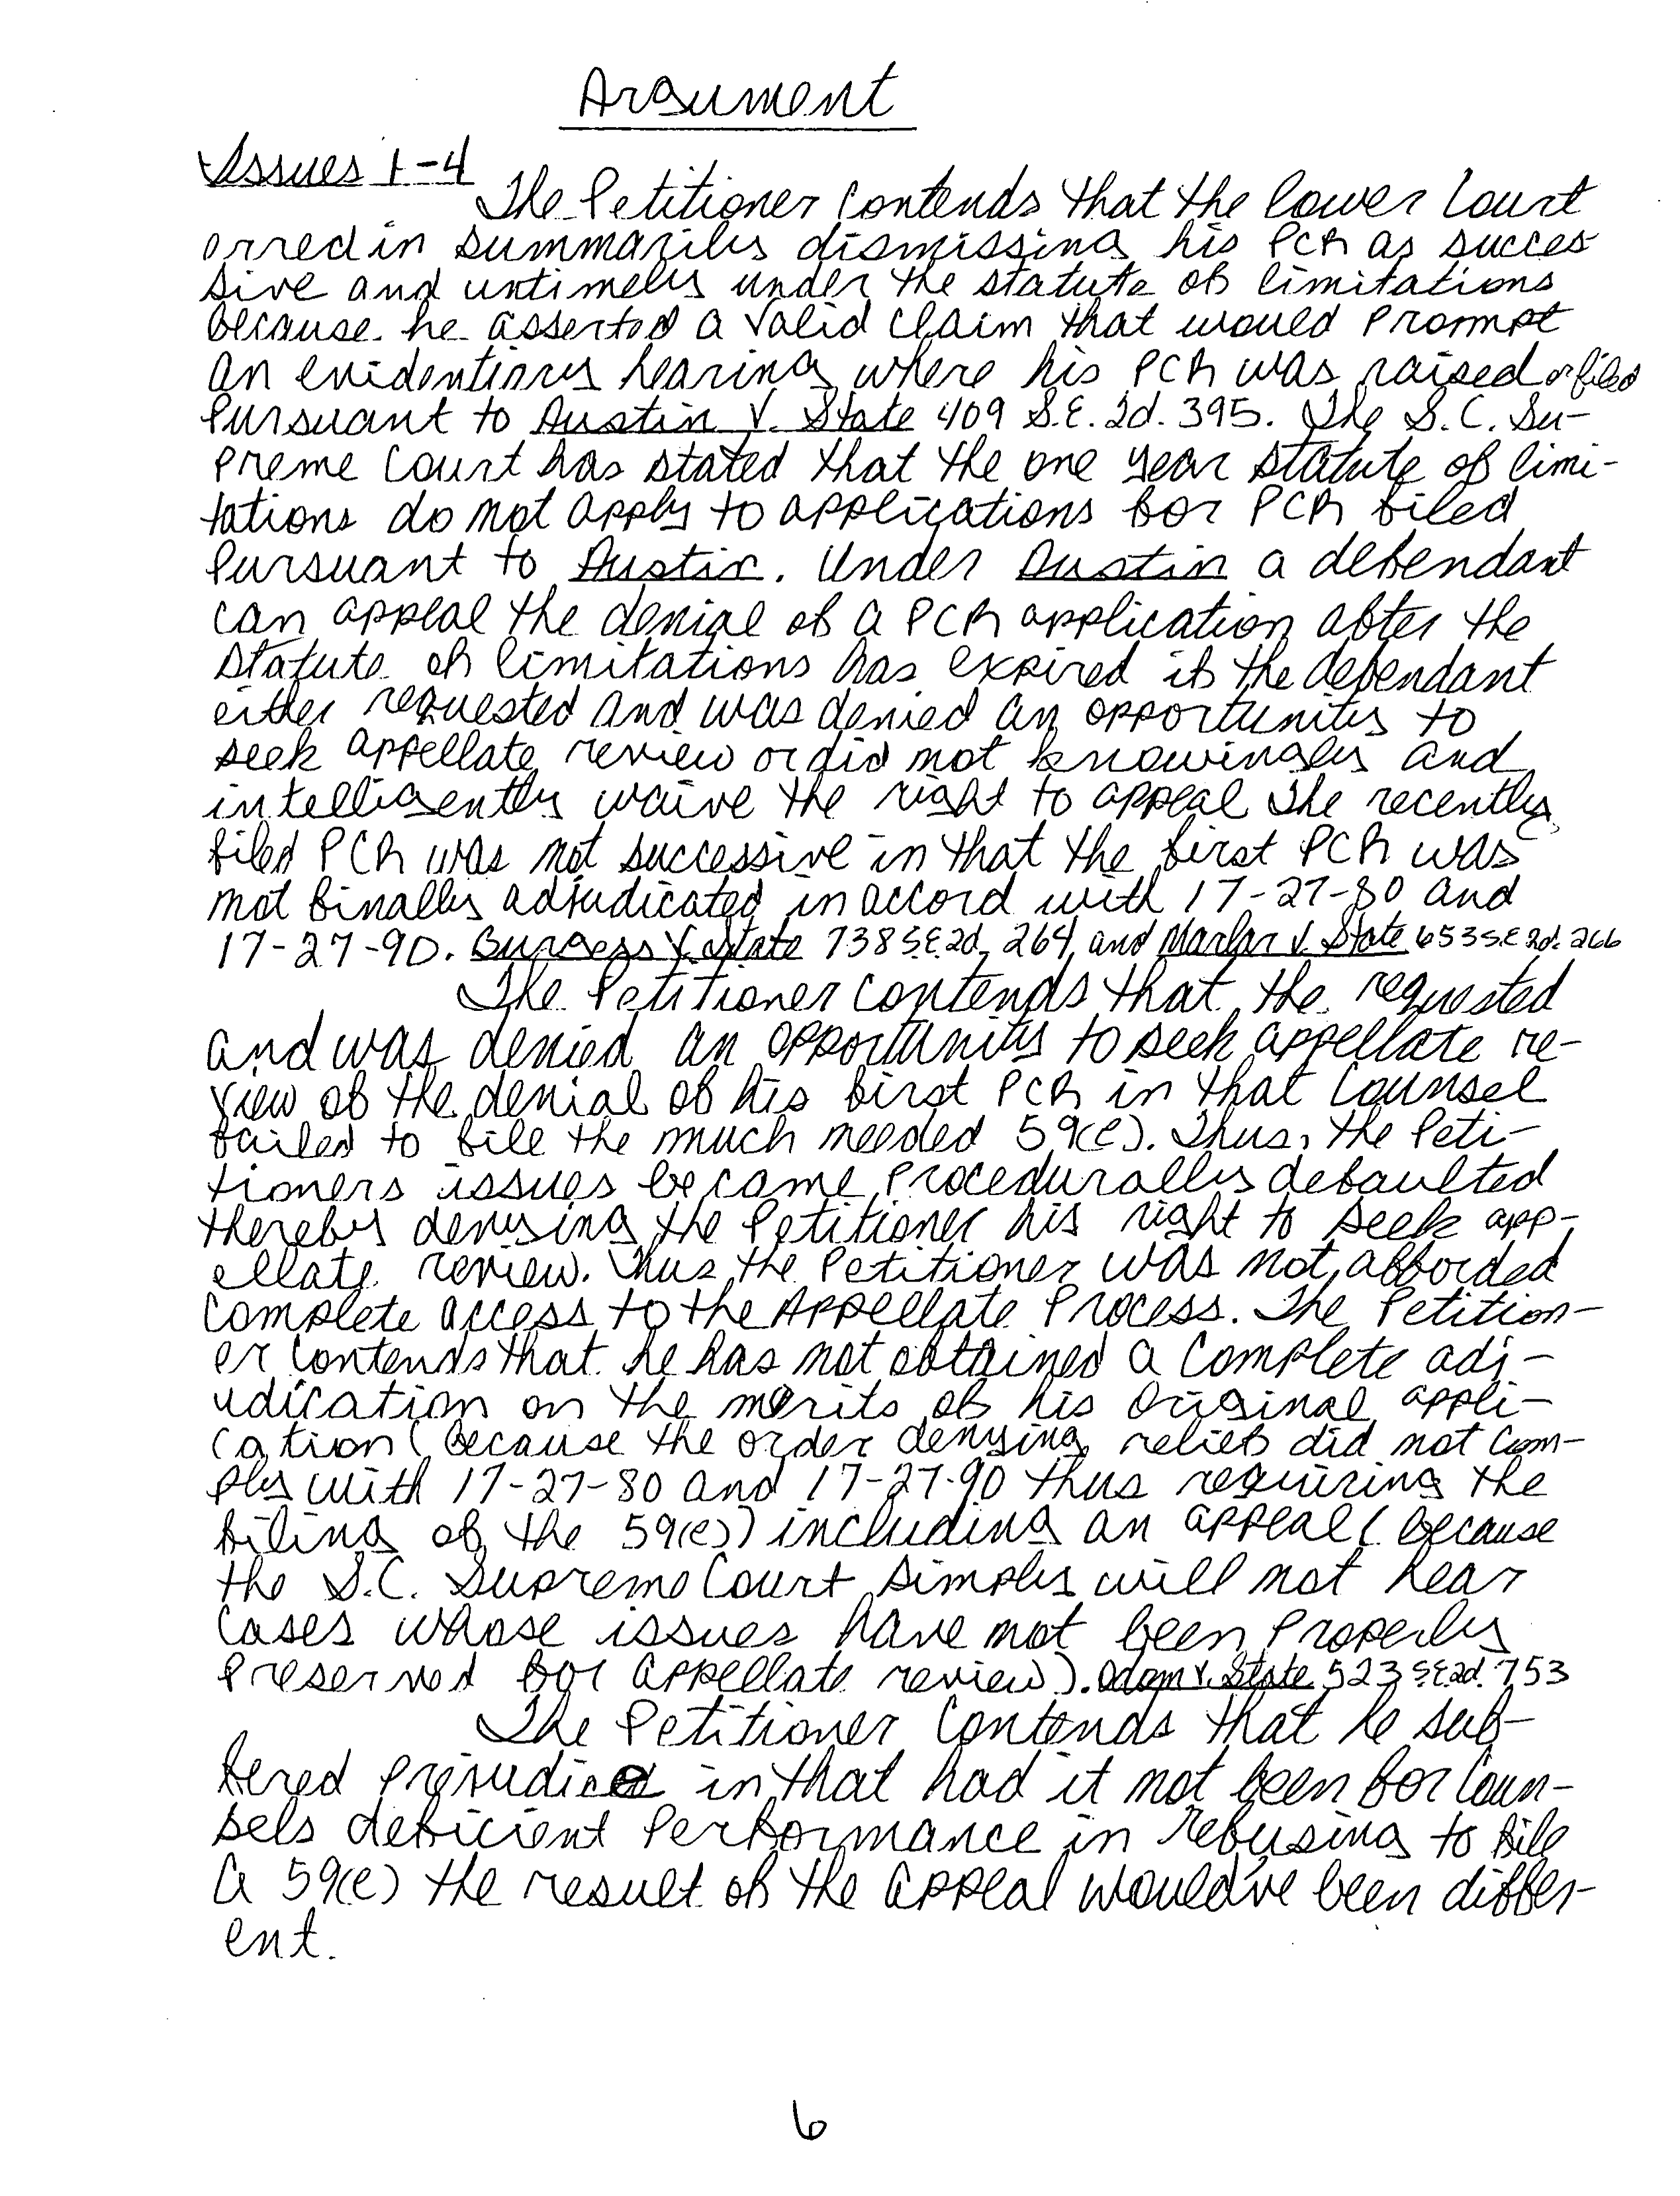 Argument
Issues 1-4
The Petitioner contends that the lower Court
erred in summarily dismissing his PCR as succes
sive and untimely under the statute of limitations
because he asserted a valid claim that would prompt
an evidentiary hearing where his PCR was raised or filed
pursuant to Austin v. State 409 S.E. 2d. 395. The S.C. Su-
preme Court has stated that the one year statute of limi-
tations do not apply to applications for PCR filed
pursuant to Austin. Under Austin a defendant
can appeal the denial of a PCR application after the
statute of limitations has expired if the defendant
either requested and was denied an opportunity to
seek appellate review or did not knowingly and
intelligently waive the right to appeal The recently
filed PCR was not successive in that the first PCR was
not finally adjudicated in accord with 17-27-80 and
17-27-90. Burgess v. State 738 S.E 2d. 264, and Marlar v. State 653 S.E 2d. 266
The Petitioner contends that the requested
and was denied an opportunity to seek appellate re-
view of the denial of his first PCR in that Counsel
failed to file the much needed 59(e). Thus, the Peti-
tioners issues became procedurally defaulted
thereby denying the Petitioner his right to seek app-
ellate review. Thus the Petitioner was not afforded
complete access to the Appellate Process. The Petition-
er contends that he has not obtained a complete adj-
udication on the merits of his original appli-
cation (because the order denying relief did not com-
ply with 17-27-80 and 17-27-90 thus requiring the
filing of the 59(e)) including an appeal (because
the S.C. Supreme Court simply will not hear
cases whose issues have not been properly
preserved for appellate review). Odom v. State 523 S.E 2d. 753
The Petitioner contends that he suf-
fered prejudice in that had it not been for Coun-
sels deficient performance in refusing to file
a 59(e) the result of the appeal would've been differ-
ent.
6